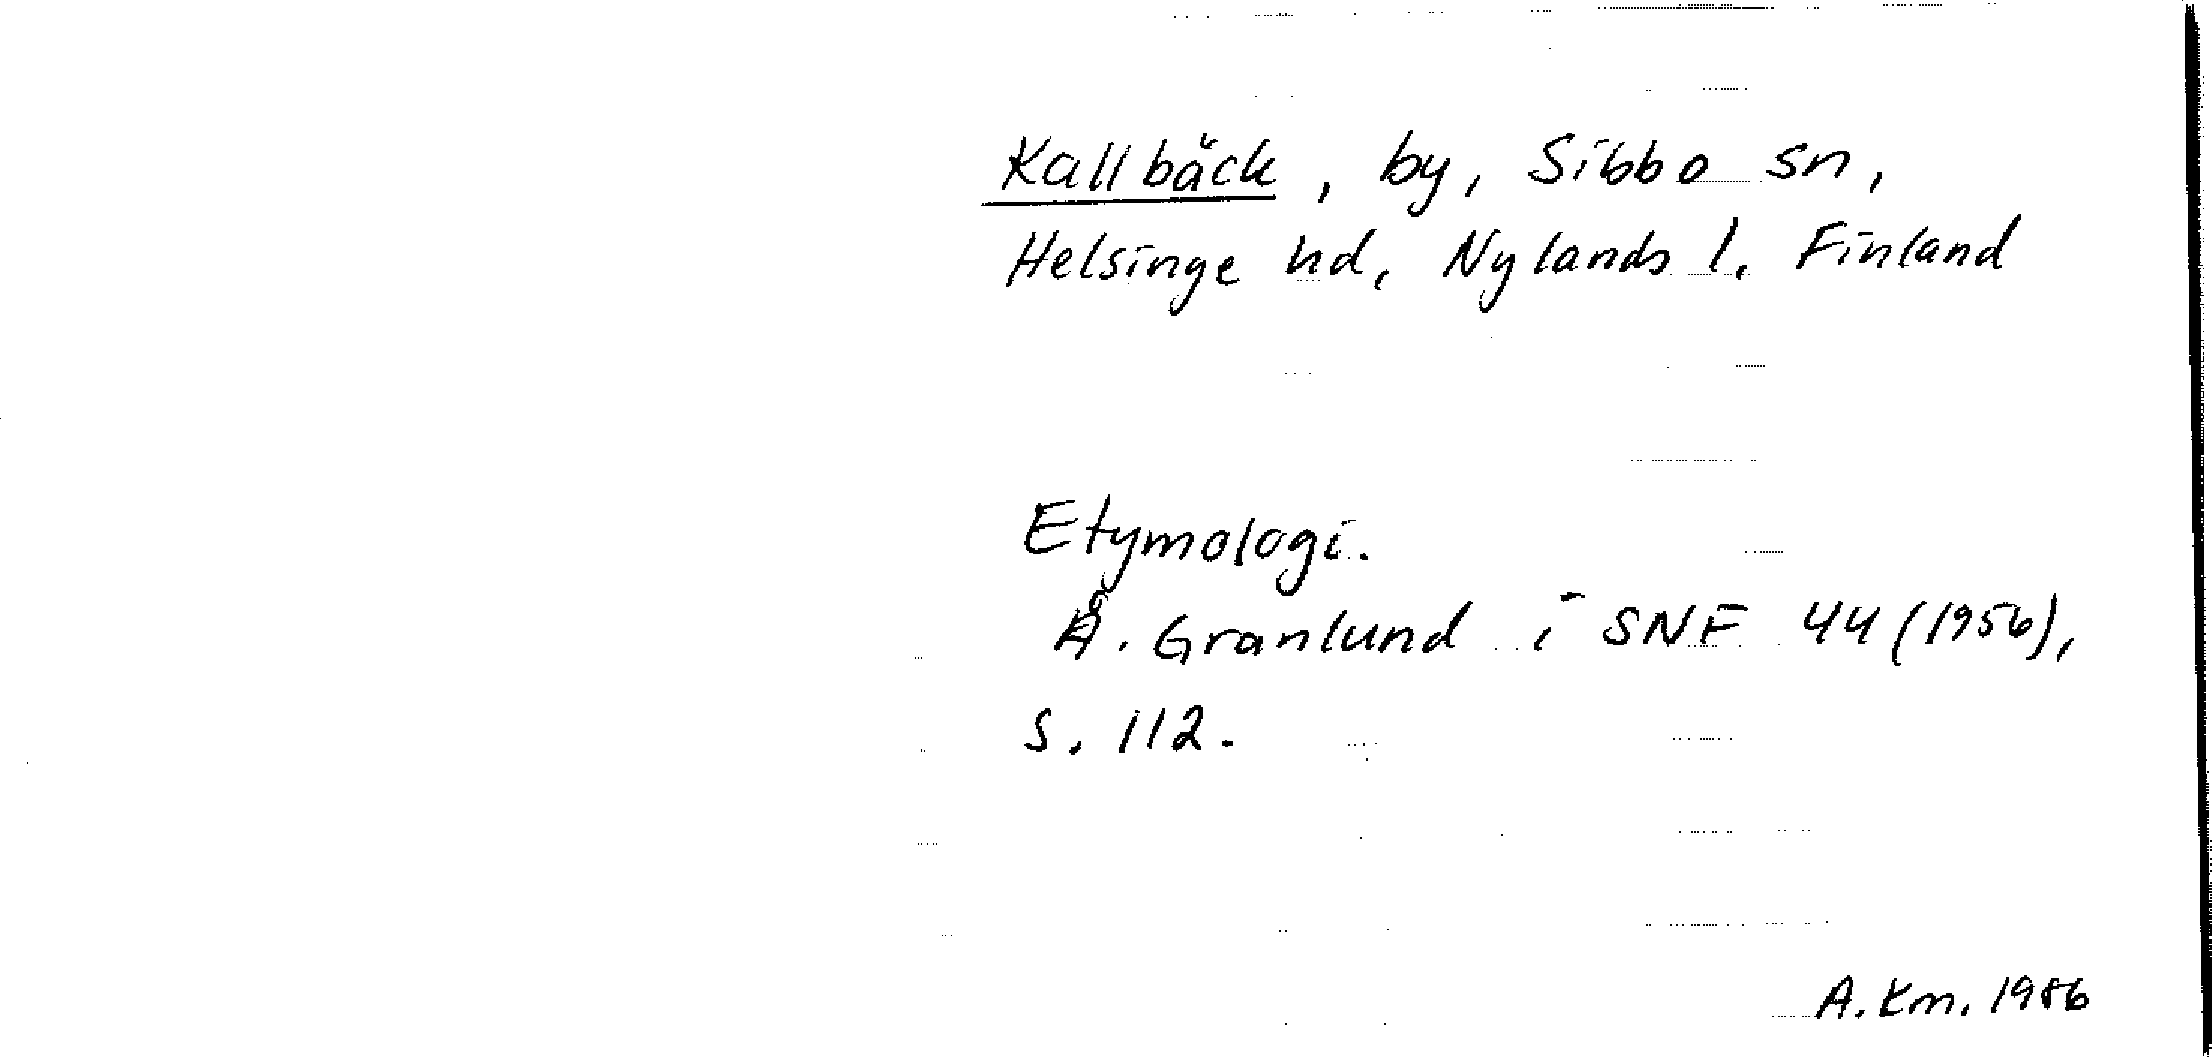 Kallbäck, by, Sibbo sn,
Helsinge hd, Nylands l. Finland
Etymologi.
Å. Granlund i SNF 44 (1956),
s. 112.
A. Km. 1986